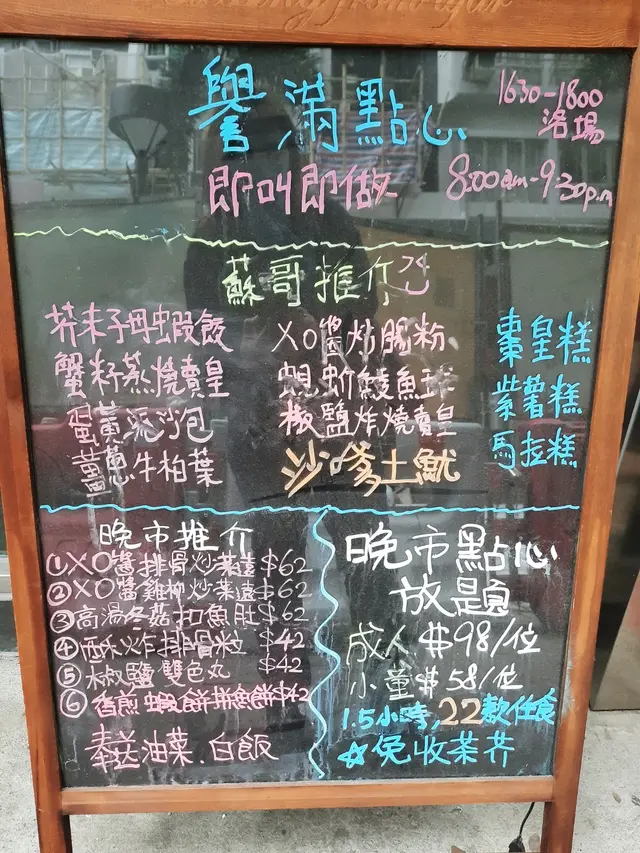 譽滿點心
1630-1800
落場
即叫即做
8:00am-9:30p.m
蘇哥推介
芥末子母蝦餃
XO醬炒腸粉
棗皇糕
蟹籽蒸燒賣皇
蜆蚧鯪魚球
紫薯糕
蛋黃流沙包
椒鹽炸燒賣皇
馬拉糕
薑蔥牛柏葉
沙嗲土魷
晚市推介
①XO醬排骨炒菜遠 $62
②XO醬雞柳炒菜遠 $62
③高湯冬菇扣魚肚 $62
④酥炸排骨粒 $42
⑤椒鹽雙色丸 $42
⑥香煎蝦餅拼魚餅 $42
奉送油菜.白飯
晚市點心
放題
成人 $98/位
小童 $58/位
1.5小時,22款任食
☆免收茶芥